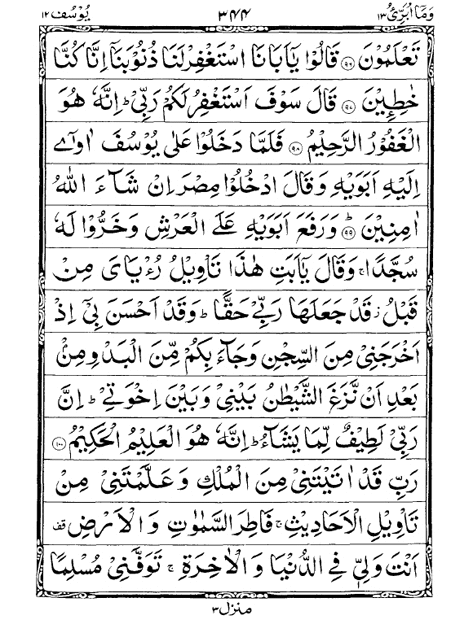 وَمَآ اُبَرِّئُ ۱۳ ۳۴۴ يُوْسُف ۱۲
تَعْلَمُوْنَ ۝۹۶ قَالُوْا يٰۤاَبَانَا اسْتَغْفِرْ لَنَا ذُنُوْبَنَاۤ اِنَّا كُنَّا
خٰطِـِٕيْنَ ۝۹۷ قَالَ سَوْفَ اَسْتَغْفِرُ لَكُمْ رَبِّيْ ؕ اِنَّهٗ هُوَ
الْغَفُوْرُ الرَّحِيْمُ ۝۹۸ فَلَمَّا دَخَلُوْا عَلٰى يُوْسُفَ اٰوٰۤى
اِلَيْهِ اَبَوَيْهِ وَقَالَ ادْخُلُوْا مِصْرَ اِنْ شَآءَ اللّٰهُ
اٰمِنِيْنَ ؕ۝۹۹ وَرَفَعَ اَبَوَيْهِ عَلَى الْعَرْشِ وَخَرُّوْا لَهٗ
سُجَّدًا ۚ وَقَالَ يٰۤاَبَتِ هٰذَا تَاْوِيْلُ رُءْيَايَ مِنْ
قَبْلُ ؗ قَدْ جَعَلَهَا رَبِّيْ حَقًّا ؕ وَقَدْ اَحْسَنَ بِيْۤ اِذْ
اَخْرَجَنِيْ مِنَ السِّجْنِ وَجَآءَ بِكُمْ مِّنَ الْبَدْوِ مِنْۢ
بَعْدِ اَنْ نَّزَغَ الشَّيْطٰنُ بَيْنِيْ وَبَيْنَ اِخْوَتِيْ ؕ اِنَّ
رَبِّيْ لَطِيْفٌ لِّمَا يَشَآءُ ؕ اِنَّهٗ هُوَ الْعَلِيْمُ الْحَكِيْمُ ۝۱۰۰
رَبِّ قَدْ اٰتَيْتَنِيْ مِنَ الْمُلْكِ وَعَلَّمْتَنِيْ مِنْ
تَاْوِيْلِ الْاَحَادِيْثِ ۚ فَاطِرَ السَّمٰوٰتِ وَالْاَرْضِ قف
اَنْتَ وَلِيّٖ فِي الدُّنْيَا وَالْاٰخِرَةِ ۚ تَوَفَّنِيْ مُسْلِمًا
منزل ۳